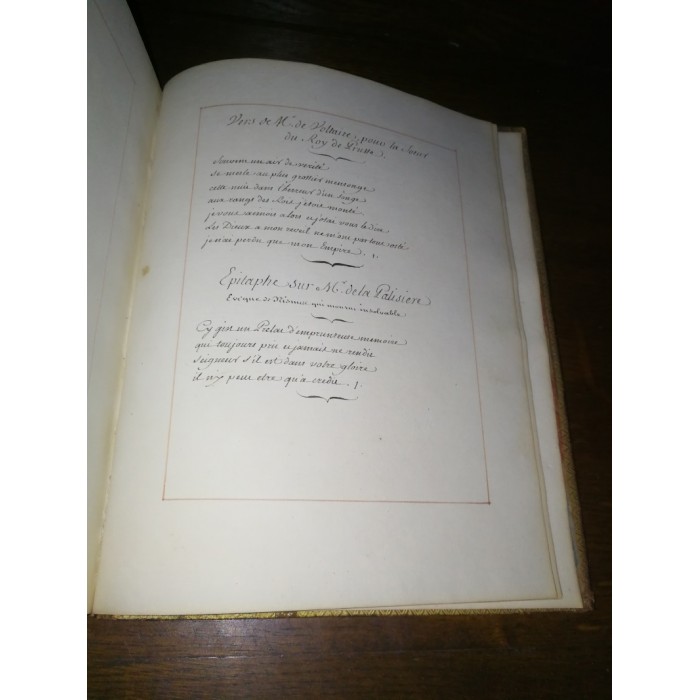 Vers de Mr. de Voltaire, pour la Soeur
du Roy de Prusse.
Souvent un air de verité
se mesle au plus grossier mensonge
cette nuit dans l'horreur d'un songe
aux rangs des Rois j'etois monté
je vous aimois alors et j'osai vous le dire
les Dieux a mon reveil ne m'ont pas tout osté
je n'ai perdu que mon Empire . /.
Epitaphe sur Mr. de la Palisiere
Evêque de qui mourut insolvable
Cy gist un Prelat d'emprunteuse memoire
qui toujours prit et jamais ne rendit
Seigneur s'il est dans votre gloire
il n'y peut etre qu'a credit . /.